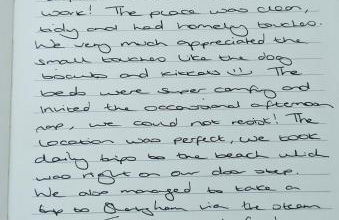 work! The place was clean,
tidy and had homely touches.
We very much appreciated the
small touches like the dog
biscuits and kitkats :) The
beds were super comfy and
invited the occasional afternoon
nap, we could not resist! The
location was perfect, we took
daily trips to the beach which
was right on our door step.
We also managed to take a
trip to via the steam